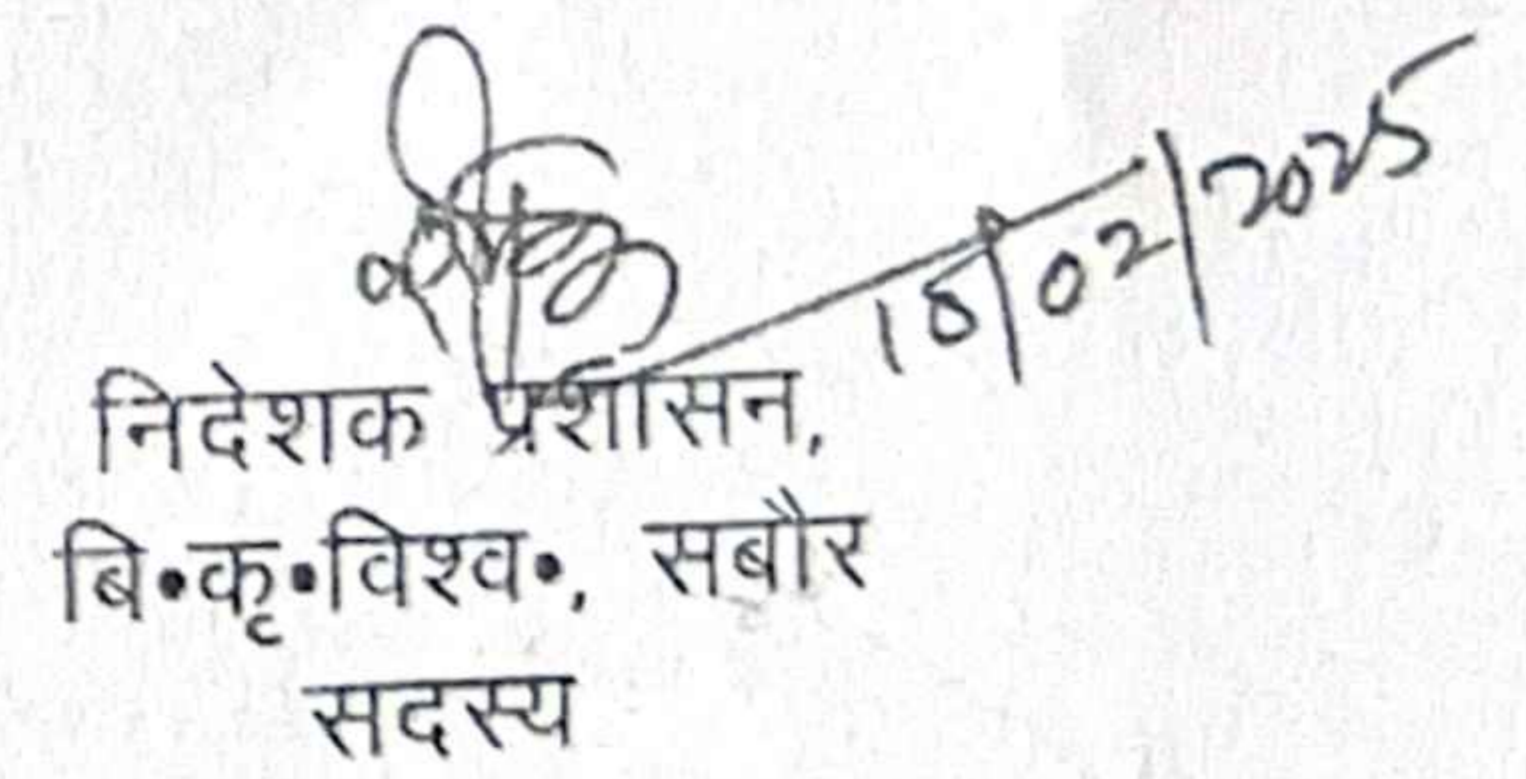 18/02/2025
निदेशक प्रशासन,
बि•कृ•विश्व•, सबौर
सदस्य